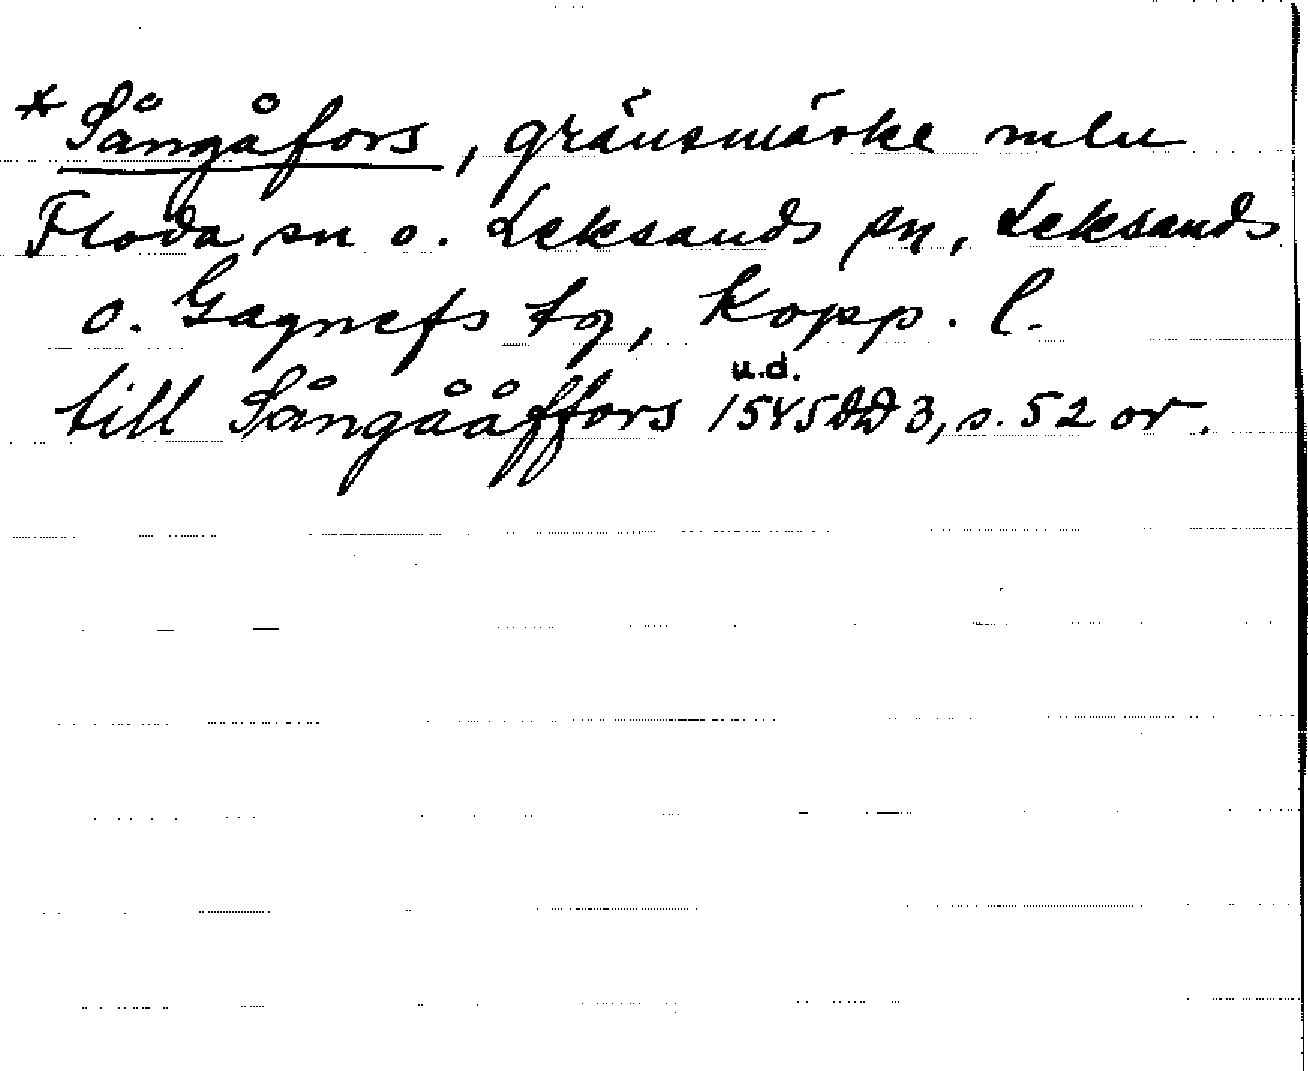 *Sångåfors, gränsmärke mln
Floda sn o. Leksands sn, Leksands
o. Gagnefs tg, Kopp. l.
u.d.
till Sångååffors 1545 DD 3, s. 52 or.